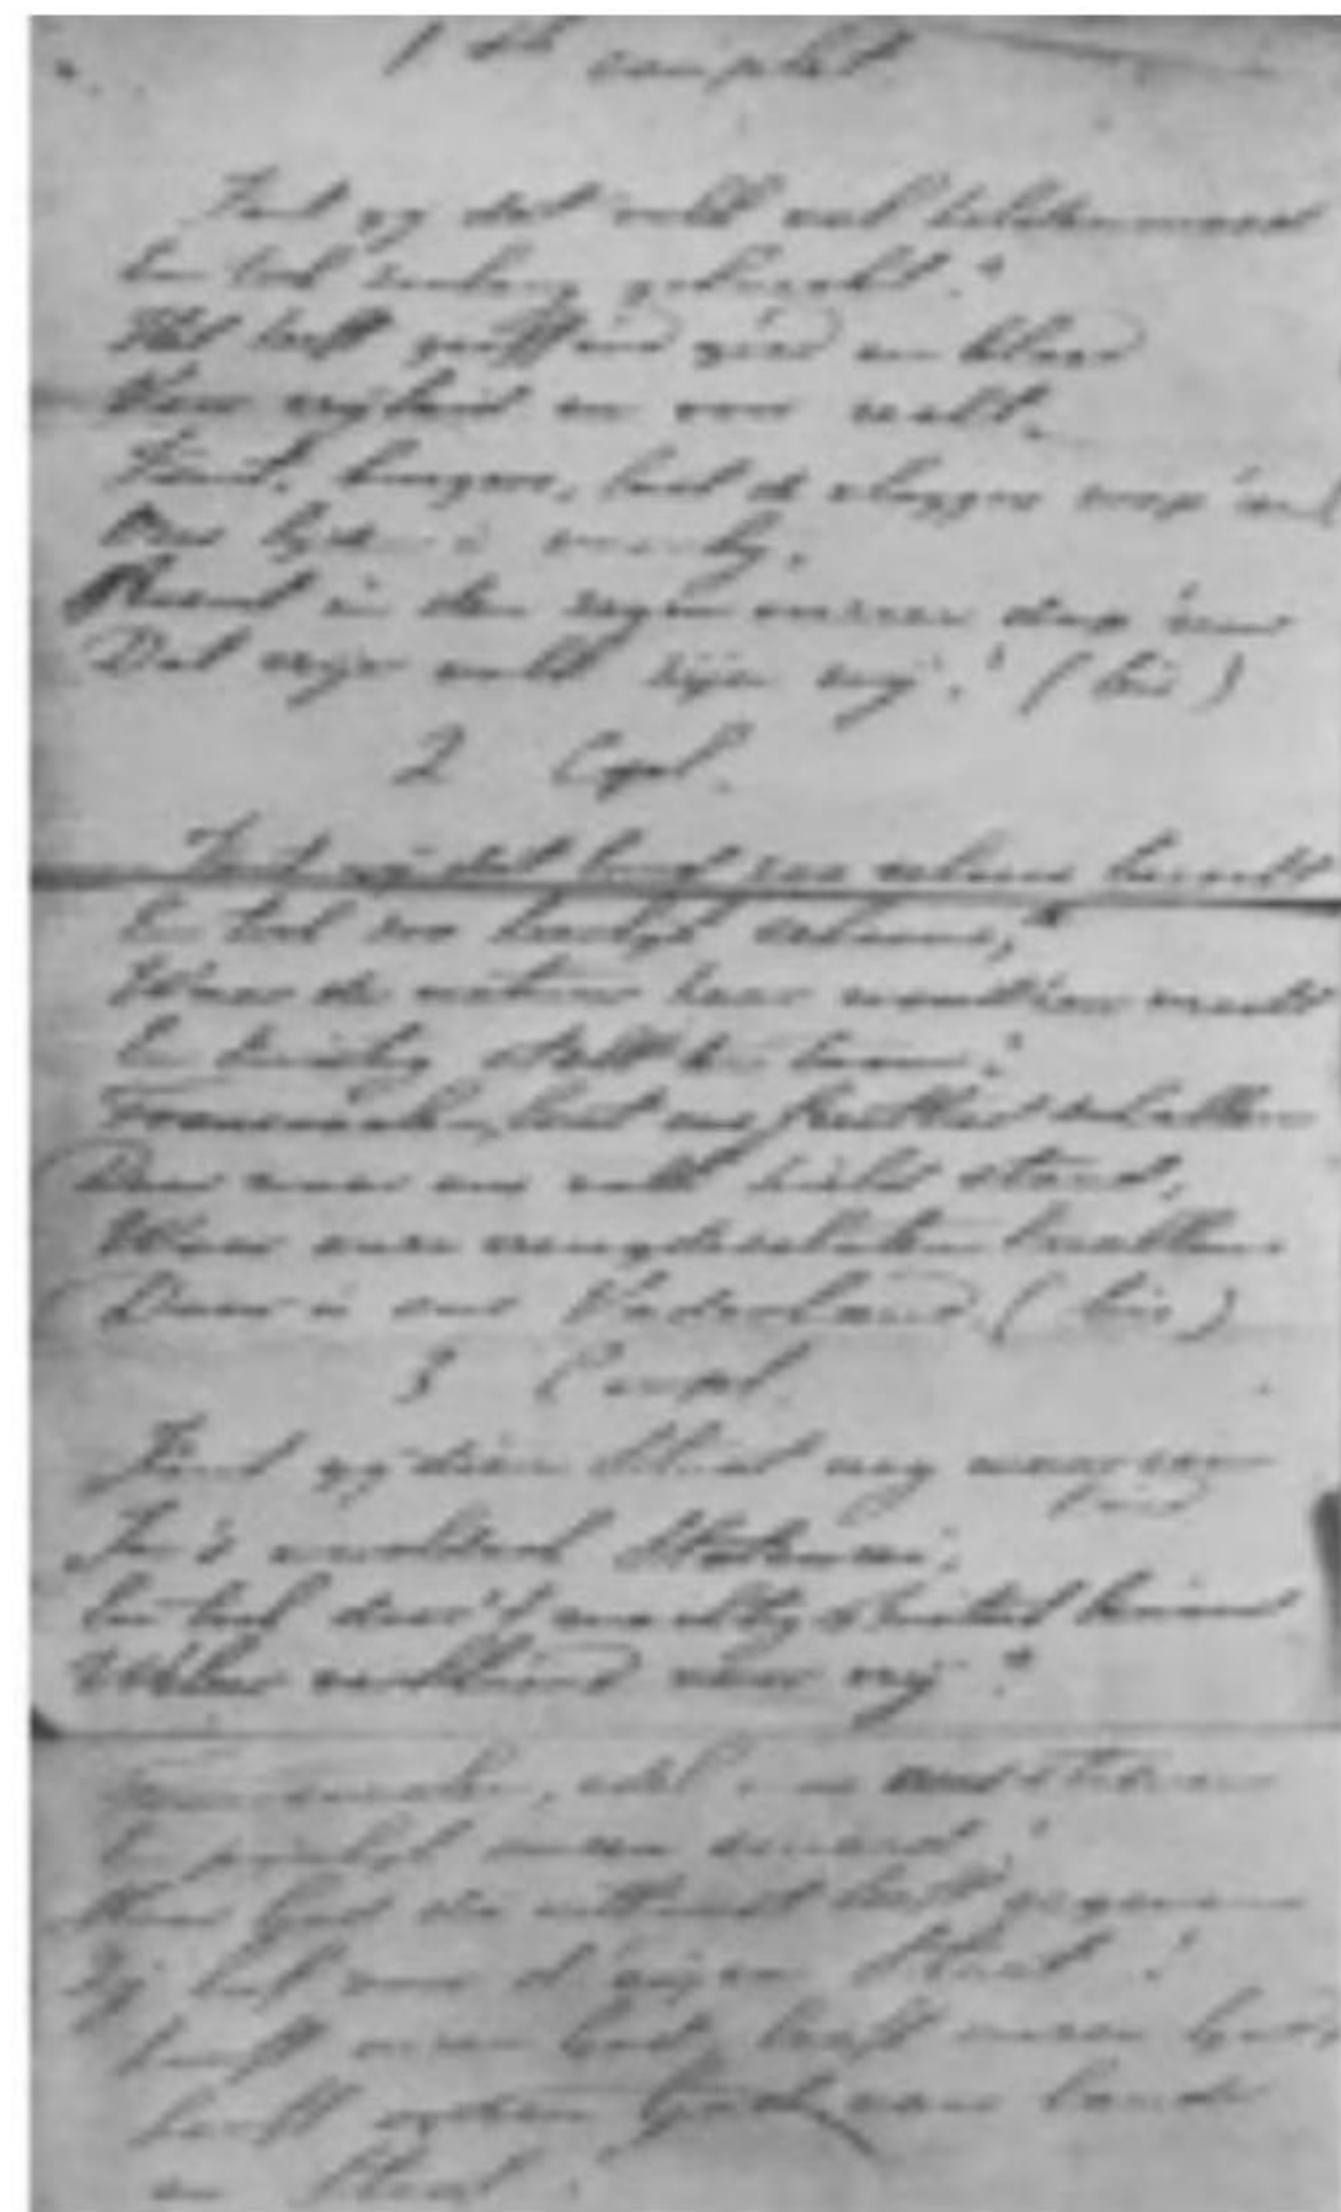 1ste couplet
Kent gy dat volk vol heldenmoed
En toch zoolang geknecht?
Het heeft geofferd goed en bloed
Voor vryheid en voor recht.
Komt, burgers, laat de vlaggen wapp'ren
Ons lyden is voorby,
Roemt in den zege onzer dapp'ren
Dat vrije volk zijn wij! (bis)
2 Cpl.
Kent gij dat land zoo schaars bezocht
En toch zoo heerlijk schoon,
Waar de natuur haar wond'ren wrocht
En kwistig stelt ten toon?
Transvaalers, laat ons feestlied schallen
Daar waar ons volk hield stand,
Waar onze vreugdeschoten knallen
Daar is ons Vaderland (bis)
3 Coupl.
Kent gy dien Staat nog maar een
kind
In 's werelds Statenrei,
En toch door 't
Weleer verklaard voor vrij?
edel was
En pijnlijk onzen smaad,
Maar God die uitkomst heeft gegeven
Zij lof voor d'eigen Staat!
Looft onzen God, looft onzen God,
Looft onzen God voor land
en Staat!